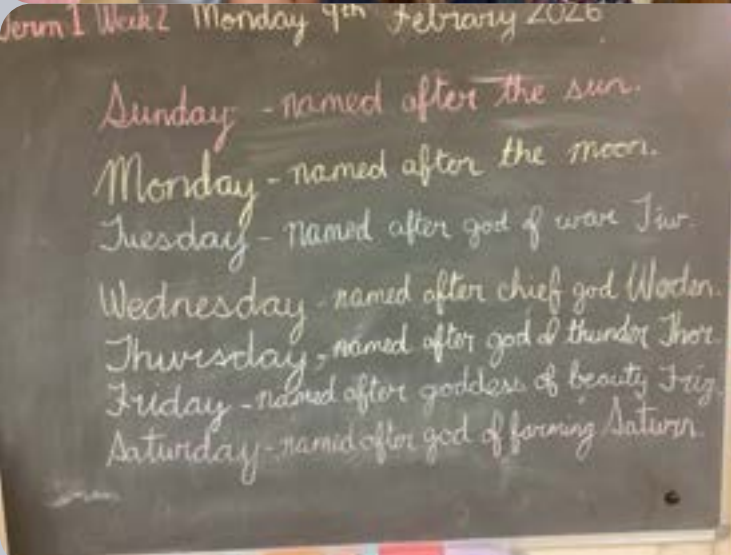 Term 1 Week 2 Monday 9th February 2026
Sunday - named after the sun.
Monday - named after the moon.
Tuesday - named after god of war Tiw.
Wednesday - named after chief god Woden.
Thursday - named after god of thunder Thor.
Friday - named after goddess of beauty Frig.
Saturday - named after god of farming Saturn.